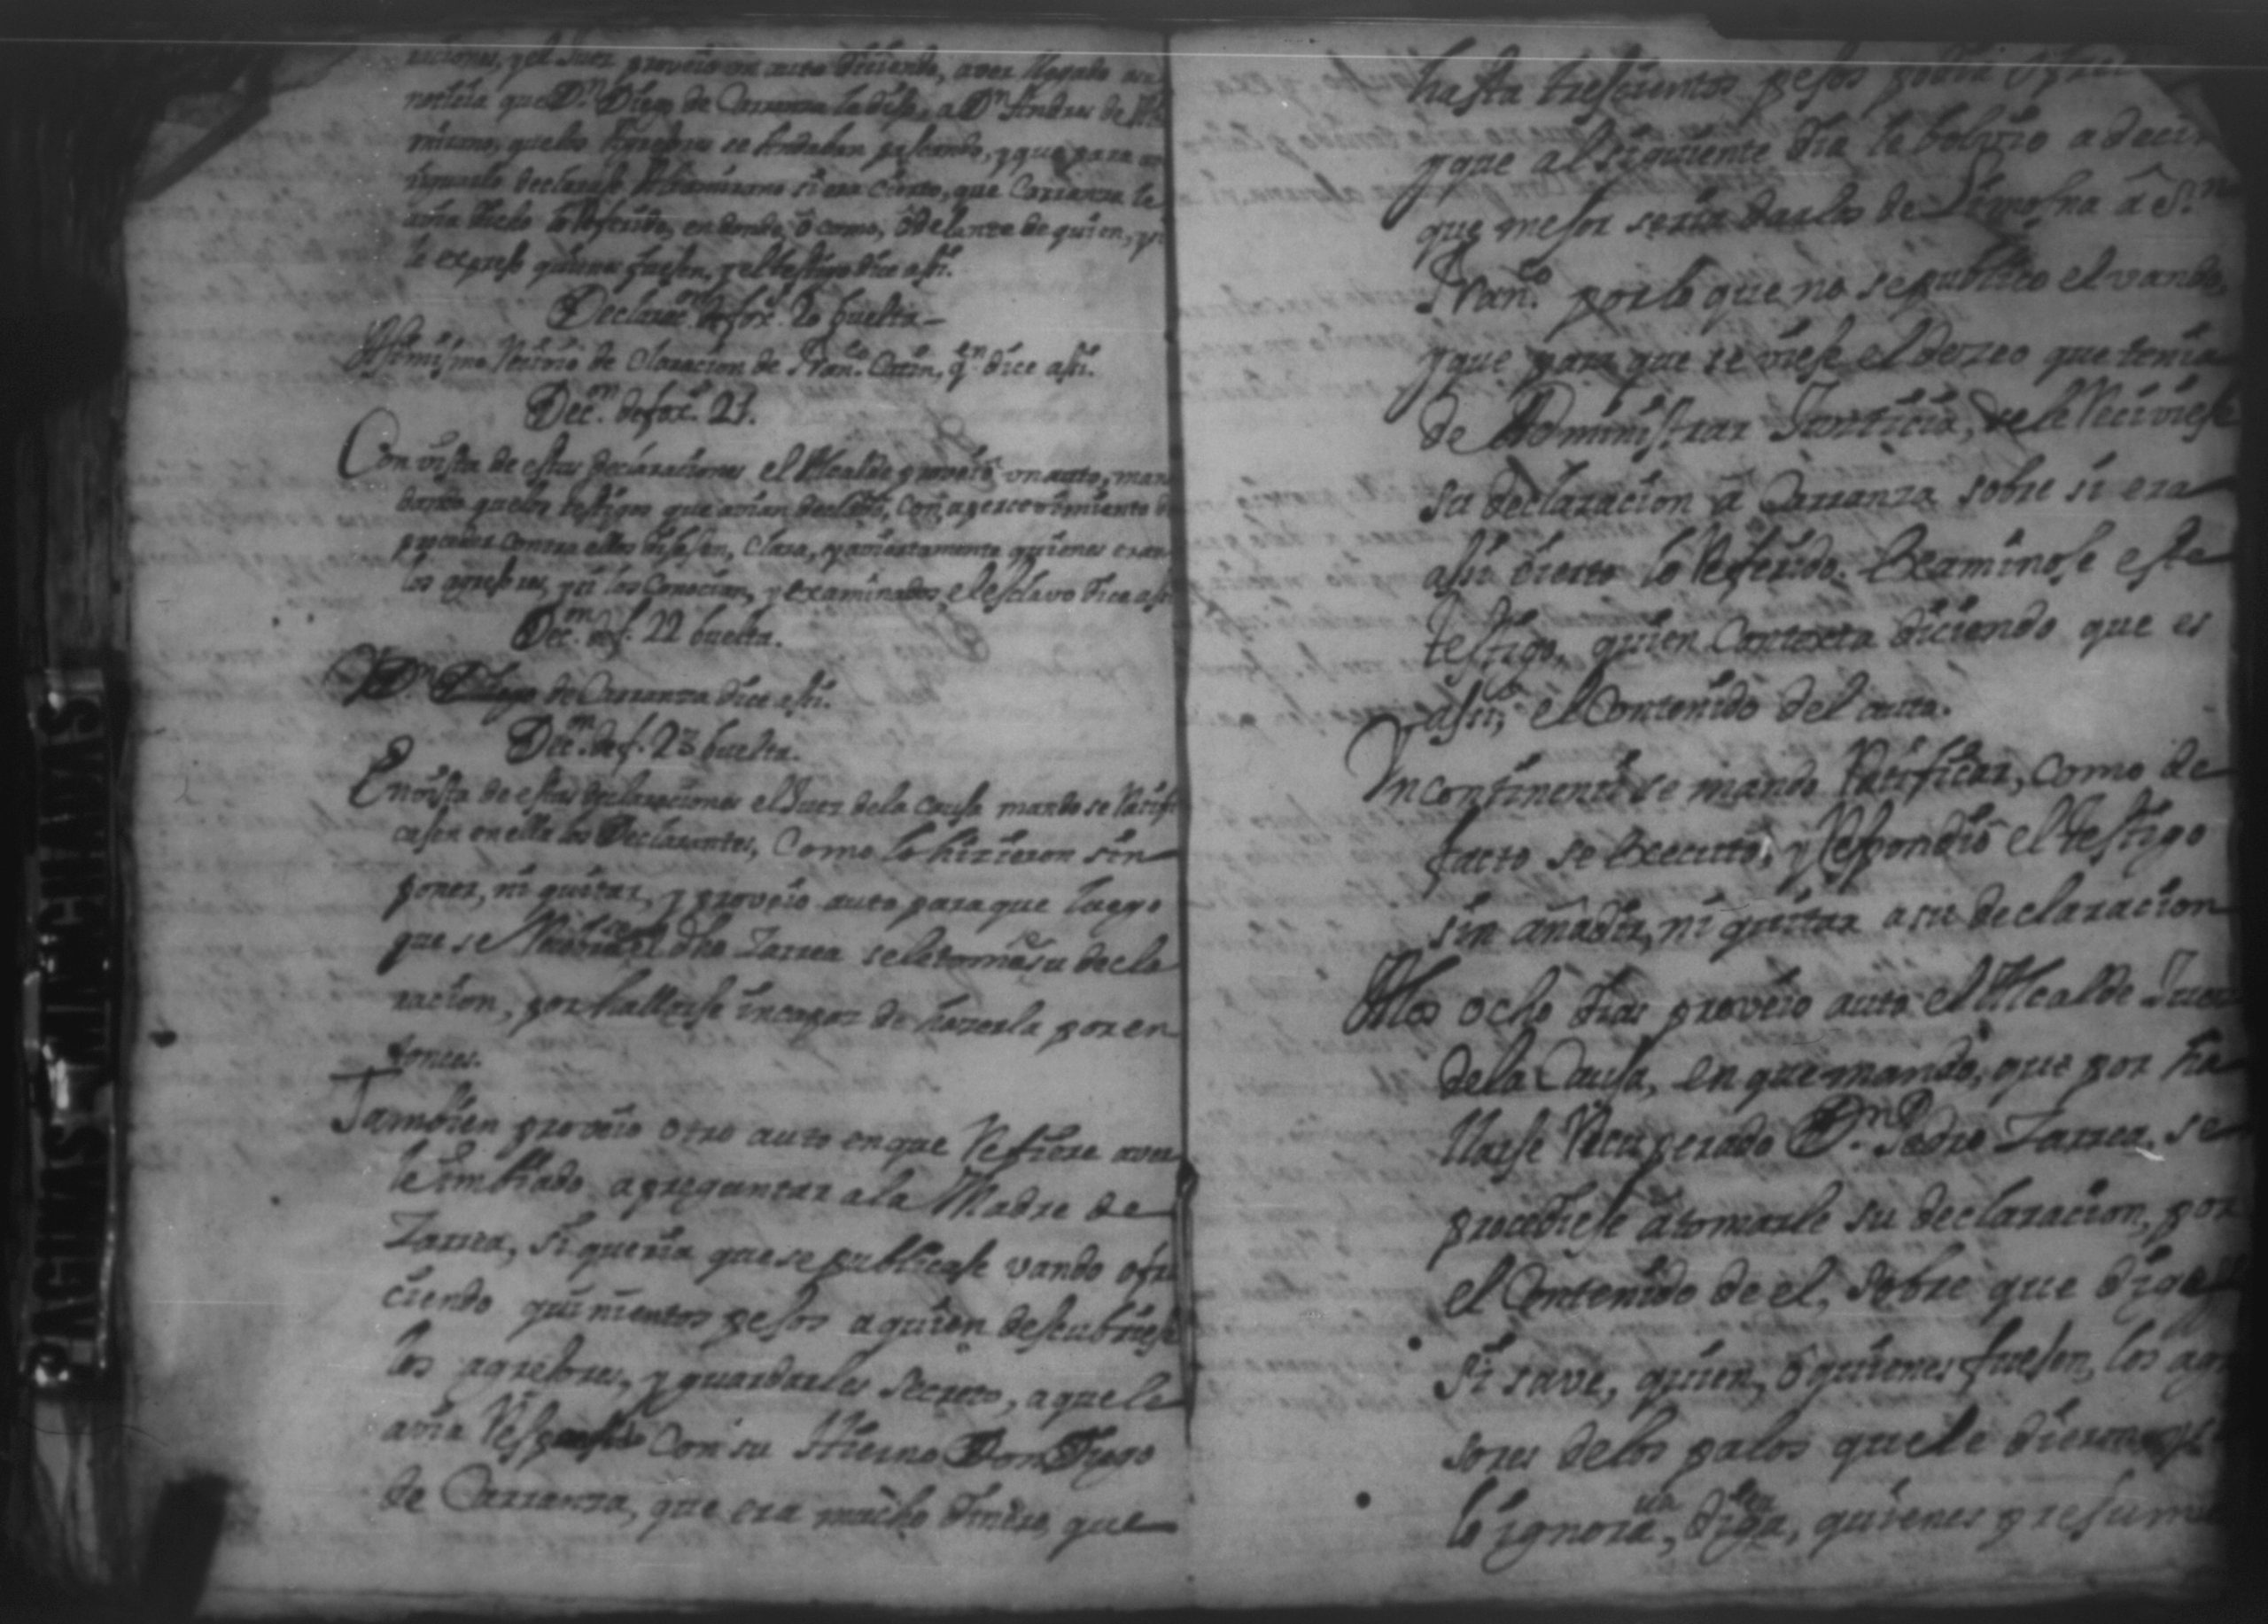 raciones, y el Juez proveió un auto diciendo, aver llegado a su
noticia que Dn. Diego de Carranza le dijo, a Dn. Andres de
mirano, que los Agresores se andaban paseando, y que para
declarase Altamirano si era cierto, que Carranza le
avia dicho lo Referido, en donde, ô como, ô delante de quien, y si
le expresó quienes fuesen, y el testigo dice assi.
Declaracon. de fox. 20 buelta
Assimismo Recivio declaracion de Franco. Catin, qn. dice assi.
Decn. de fox. 21.
Con vista de estas declaraciones el Alcalde proveió un auto, man
dando que los testigos que avian declarado, con apercevimiento de
proceder contra ellos dixesen, clara, y aviertamente quienes eran
los agresores, y si los Conocian, y examinados, el esclavo dice assi
Decn. de f. 22 buelta.
Y Dn. Diego de Carranza dice assi.
Decn. de f. 23 buelta.
En vista de estas declaraciones el Juez de la causa mando se Ratifi
casen en ella los Declarantes, Como lo hizieron sin
poner, ni quitar, y proveió auto para que luego
que se dho Zarrea se le tomase su decla
racion, por hallarse incapaz de hazerla por en
tonces.
Tambien proveió otro auto en que Refiere aver
le embiado a preguntar a la Madre de
Zarrea, si queria que se publicase vando ofre
ciendo quinientos pesos a quien descubriese
los agresores, y guardarles secreto, a que le
avia Respondido Con su Hierno Don Diego
de Carranza, que era mucho dinero, que
hasta trescientos pesos podia
y que al siguiente dia le bolvio a decir
que mejor seria darlos de Limosna â Sn.
Franco. por lo que no se publico el vando,
y que para que se viese el dezeo que tenia
de Administrar Justicia, se le Reciviese
su declaracion â Carranza sobre si era
assi cierto lo Referido. Examinose este
testigo, quien Contexta diciendo que es
assi, el Contenido del auto.
Yncontinenti se mando Ratificar, como de
facto se executó, y Respondió el testigo
sin añadir, ni quitar a su declaracion
A los ocho dias proveió auto el Alcalde Juez
de la Causa, en que mandó, que por ha
llarse Recuperado Dn. Pedro Zarrea se
procediese â tomarle su declaracion, por
el Contenido de el, sobre que diga
si save, quien, ô quienes fuesen, los agre
sores de los palos que le dieron, y si
lo ignora, diga, quienes presume
PAGINAS MANCHADAS